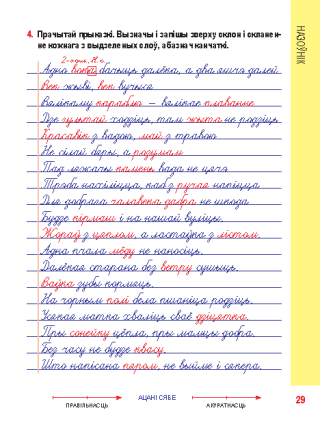 НАЗОЎНІК
4. Прачытай прыказкі. Вызначы і запішы зверху склон і скланен-
не кожнага з выдзеленых слоў, абазнач канчаткі.
Адно вока бачыць далёка, а два яшчэ далей.
Век жыві, век вучыся.
Вялікаму караблю — вялікае плаванне.
Дзе гультай ходзіць, там жыта не родзіць.
Красавік з вадою, май з травою.
Не сілай бяры, а розумам.
Пад ляжачы камень вада не цячэ.
Трэба нахіліцца, каб з ручая напіцца.
Для добрага чалавека дабра не шкода.
Будзе кірмаш і на нашай вуліцы.
Жораў з цяплом, а ластаўка з лістом.
Адна пчала мёду не наносіць.
Далёкая старана без ветру сушыць.
Ваўка зубы кормяць.
На чорным полі бела пшаніца родзіць.
Усякая матка хваліць сваё дзіцятка.
Пры сонейку цёпла, пры матцы добра.
Без часу не будзе квасу.
Што напісана пяром, не выйме і сякера.
АЦАНІ СЯБЕ
ПРАВІЛЬНАСЦЬ
АКУРАТНАСЦЬ
29